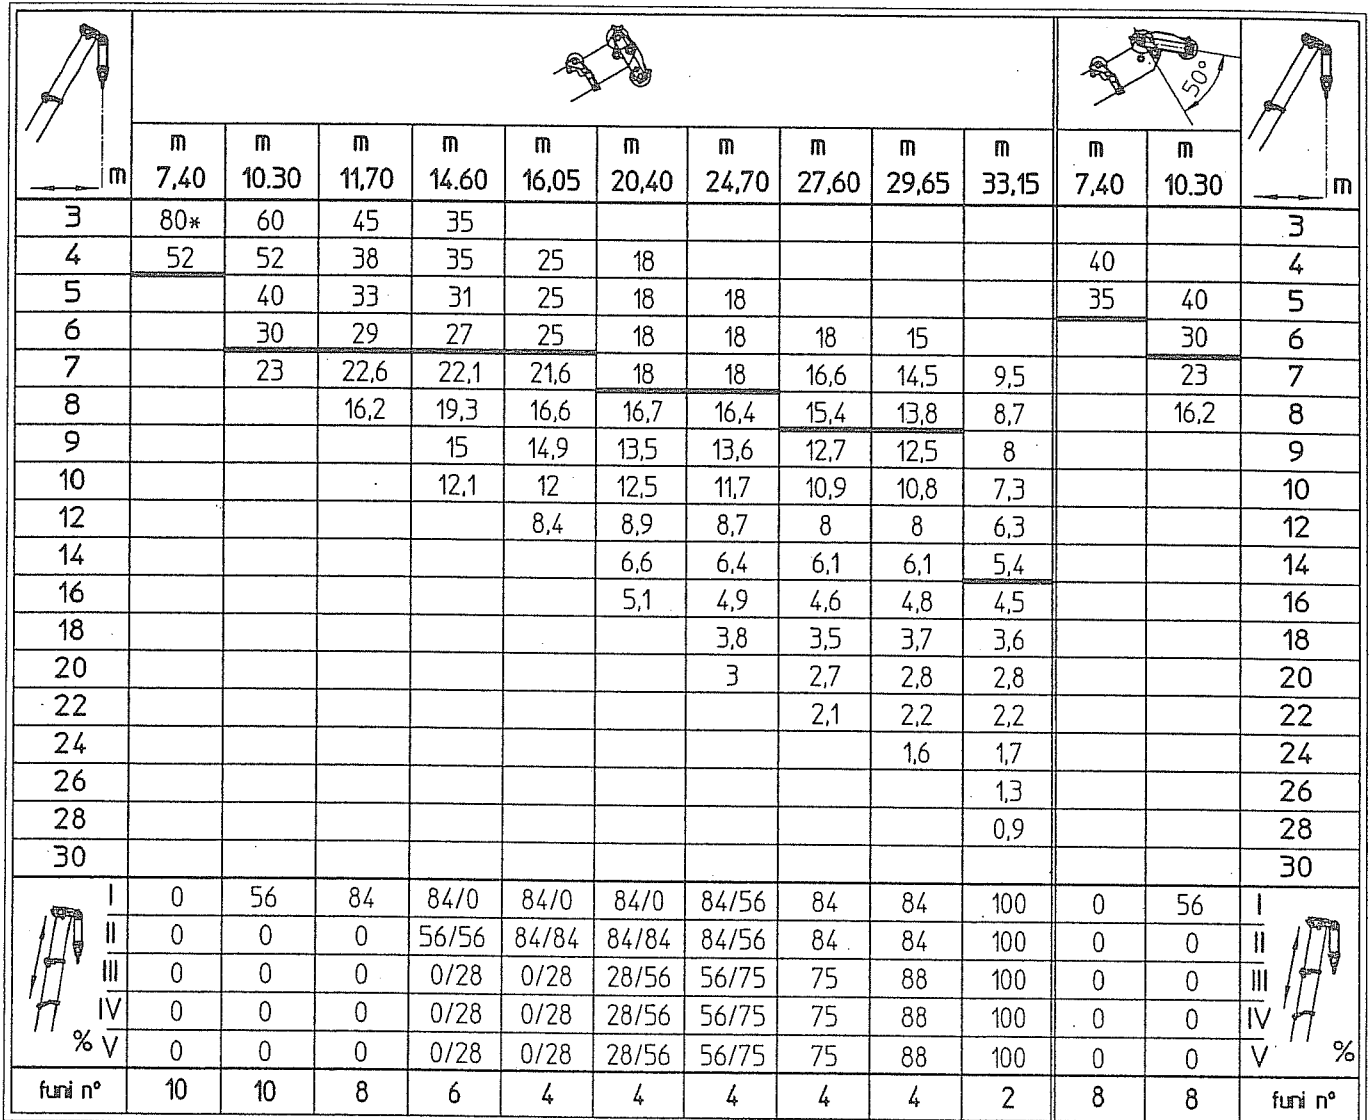 50°
m m m m m m m m m m m m
m 7,40 10.30 11,70 14.60 16,05 20,40 24,70 27,60 29,65 33,15 7,40 10.30 m
3 80* 60 45 35 3
4 52 52 38 35 25 18 40 4
5 40 33 31 25 18 18 35 40 5
6 30 29 27 25 18 18 18 15 30 6
7 23 22,6 22,1 21,6 18 18 16,6 14,5 9,5 23 7
8 16,2 19,3 16,6 16,7 16,4 15,4 13,8 8,7 16,2 8
9 15 14,9 13,5 13,6 12,7 12,5 8 9
10 12,1 12 12,5 11,7 10,9 10,8 7,3 10
12 8,4 8,9 8,7 8 8 6,3 12
14 6,6 6,4 6,1 6,1 5,4 14
16 5,1 4,9 4,6 4,8 4,5 16
18 3,8 3,5 3,7 3,6 18
20 3 2,7 2,8 2,8 20
22 2,1 2,2 2,2 22
24 1,6 1,7 24
26 1,3 26
28 0,9 28
30 30
I 0 56 84 84/0 84/0 84/0 84/56 84 84 100 0 56 I
II 0 0 0 56/56 84/84 84/84 84/56 84 84 100 0 0 II
III 0 0 0 0/28 0/28 28/56 56/75 75 88 100 0 0 III
IV 0 0 0 0/28 0/28 28/56 56/75 75 88 100 0 0 IV
% V 0 0 0 0/28 0/28 28/56 56/75 75 88 100 0 0 V %
funi n° 10 10 8 6 4 4 4 4 4 2 8 8 funi n°